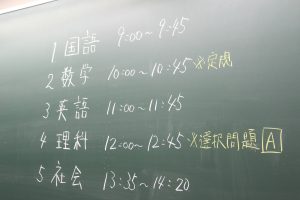 1 国語 9:00~9:45
2 数学 10:00~10:45 ※定規
3 英語 11:00~11:45
4 理科 12:00~12:45 ※選択問題 A
5 社会 13:35~14:20